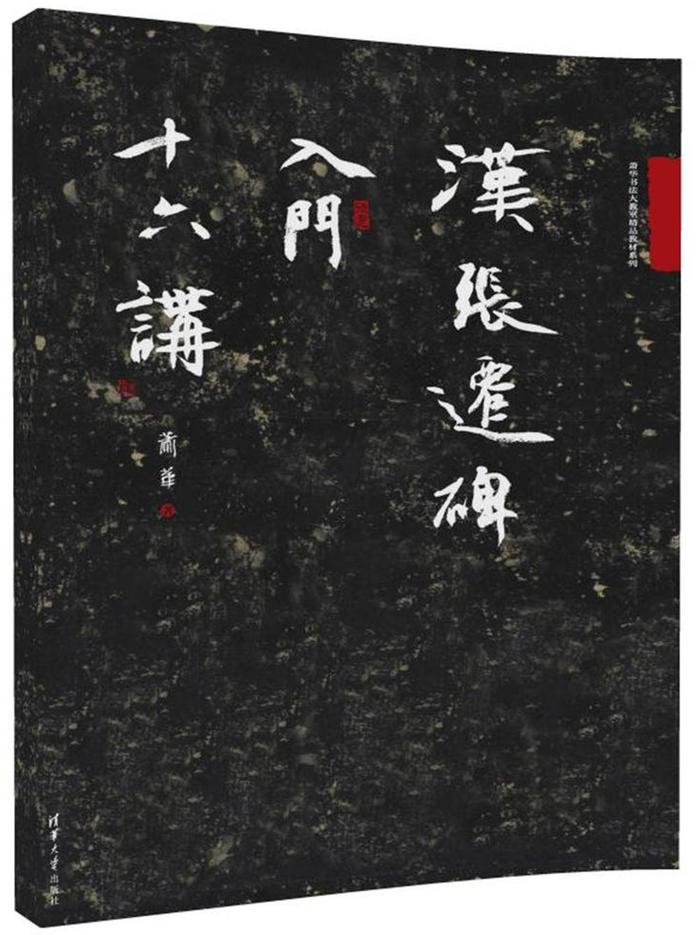 萧华书法大教室精品教材系列
漢張遷碑
入門
十六講
蕭華 著
清华大学出版社